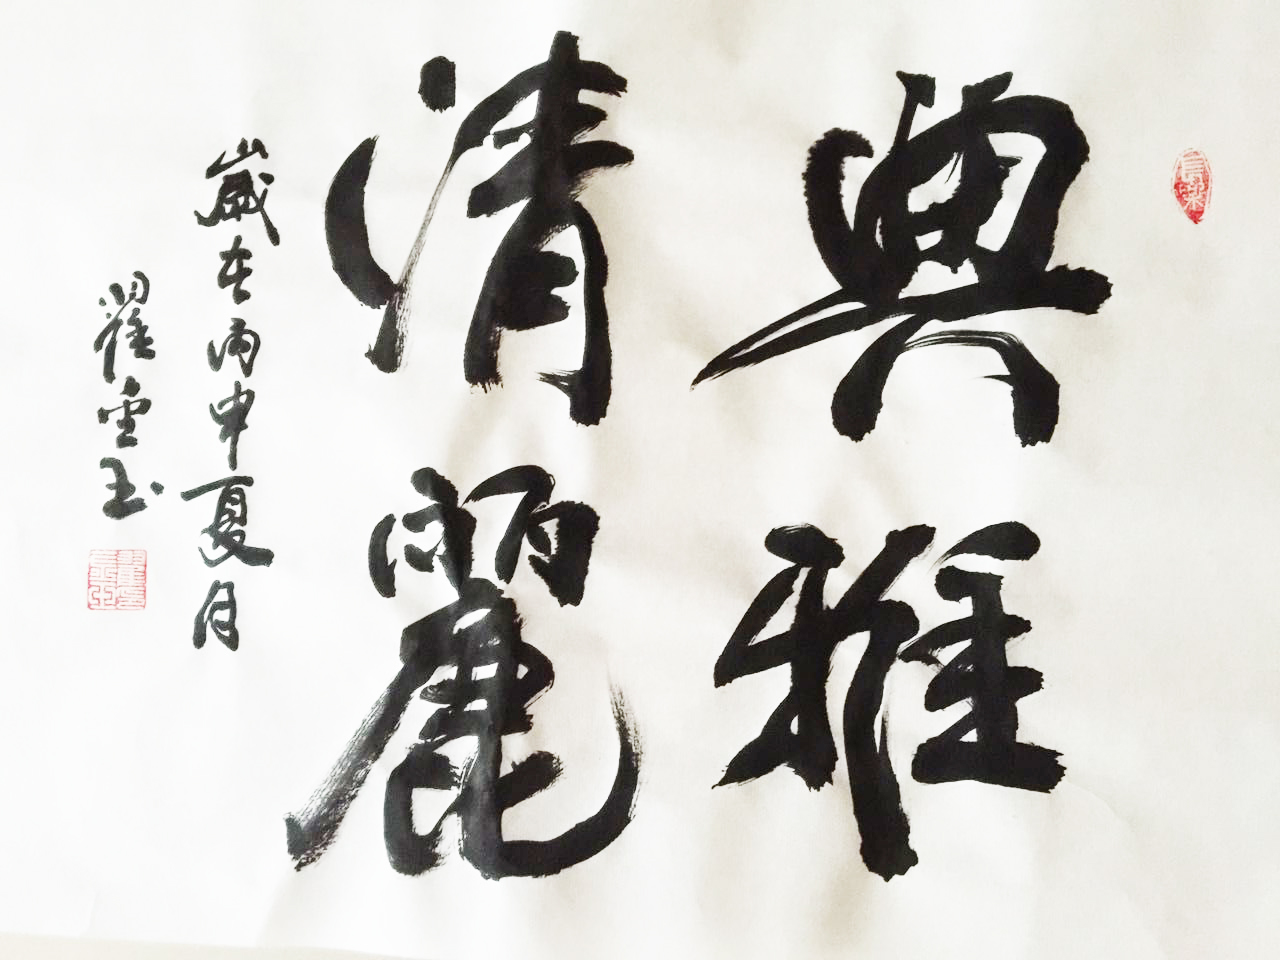 典雅
清麗
歲在丙申夏月
翟雲玉
長樂